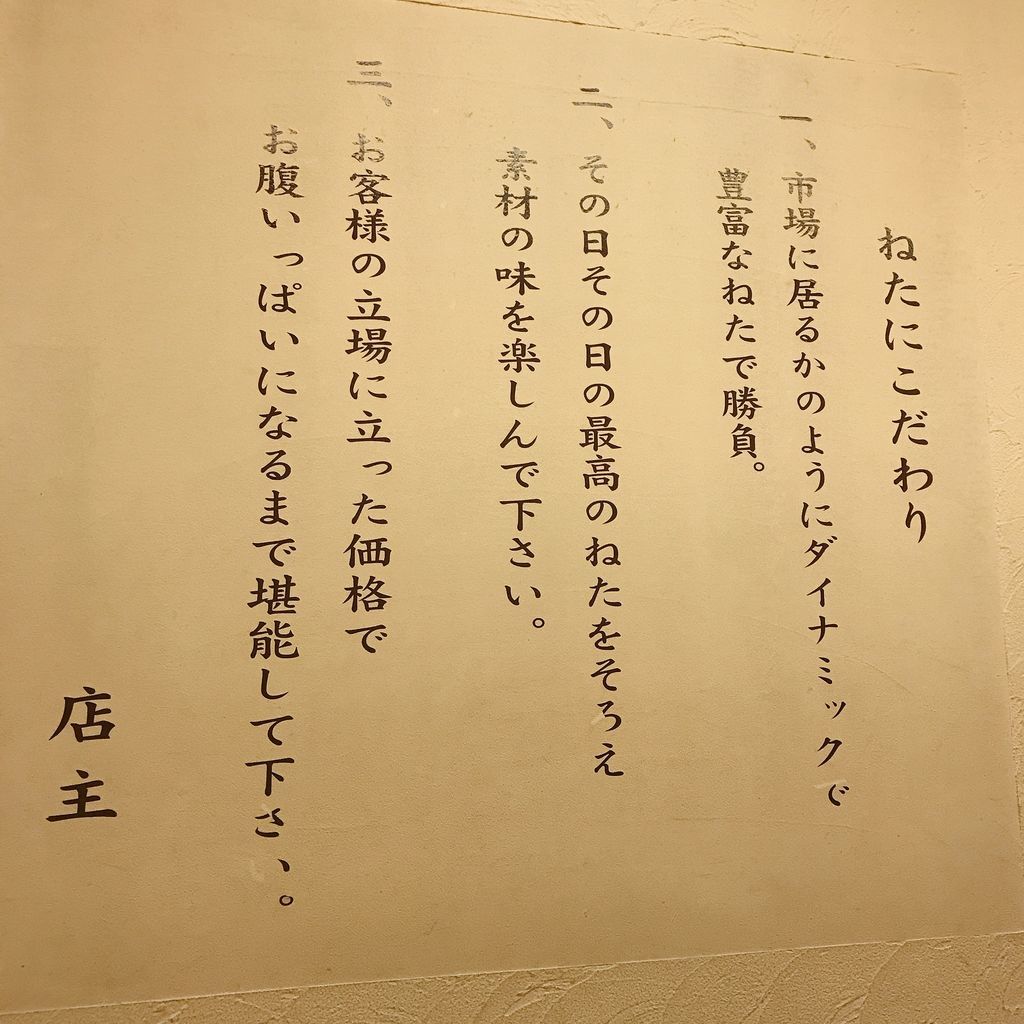 ねたにこだわり
一、市場に居るかのようにダイナミックで
豊富なねたで勝負。
二、その日その日の最高のねたをそろえ
素材の味を楽しんで下さい。
三、お客様の立場に立った価格で
お腹いっぱいになるまで堪能して下さい。
店主